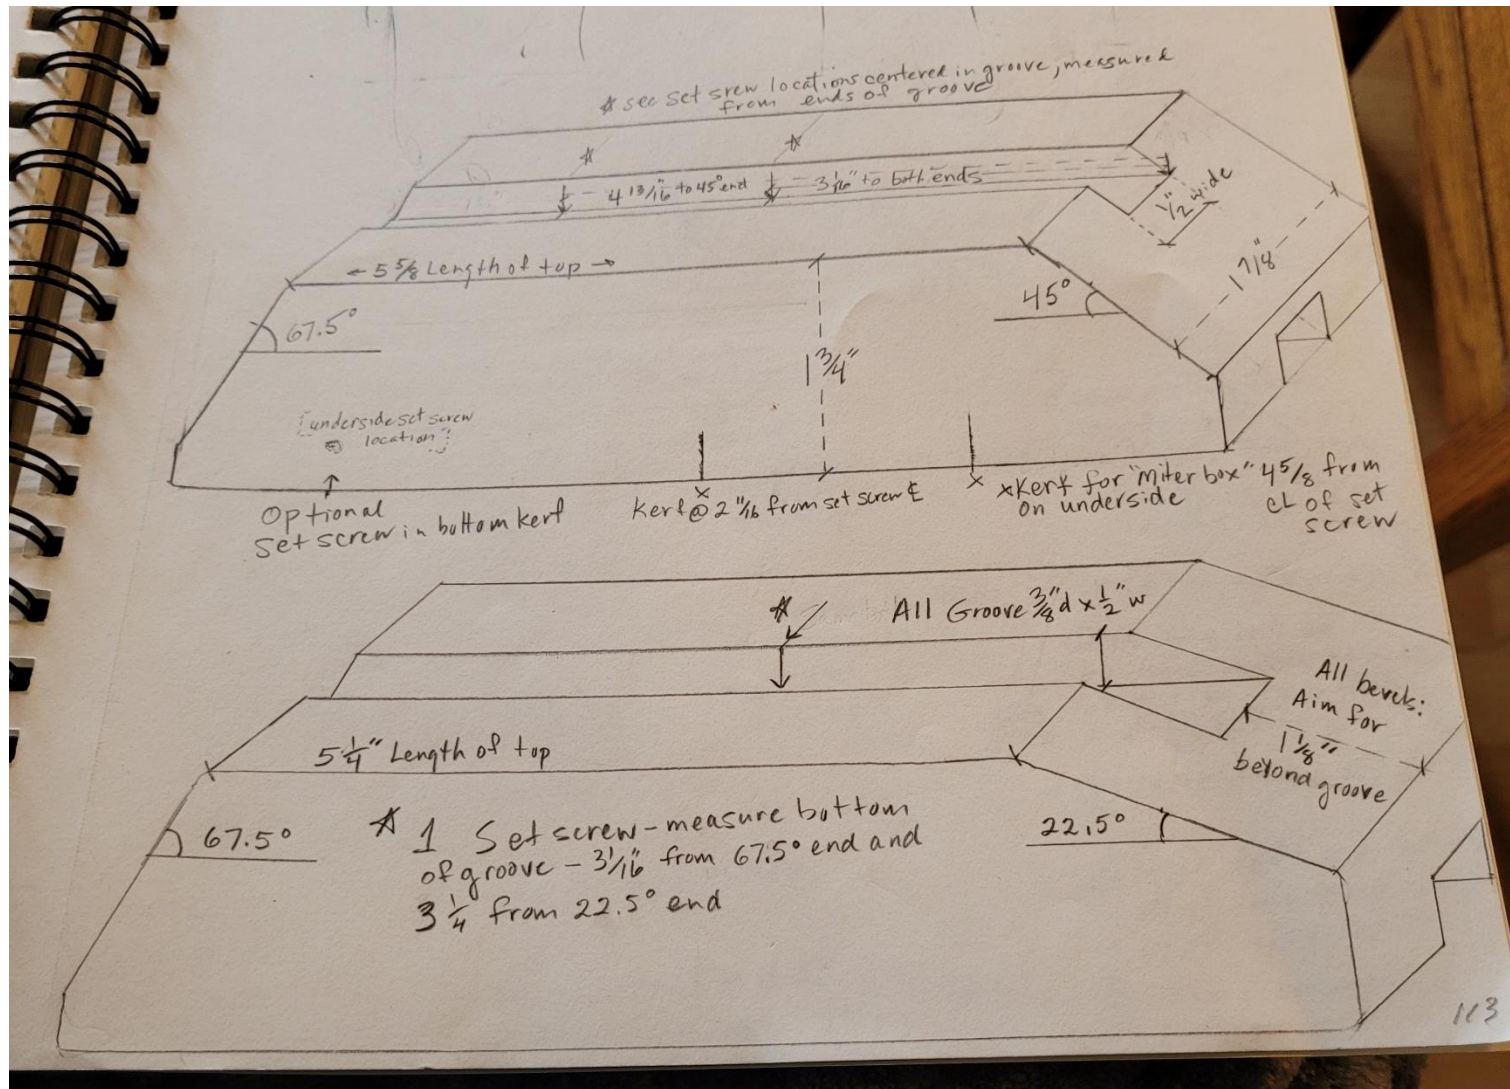 ☆ see set srew locations centered in groove, measured
from ends of groove
☆
☆
4 13/16" to 45° end
3 1/16" to both ends
1/2" wide
← 5 5/8 Length of top →
1 7/8"
67.5°
45°
1 3/4"
[underside set screw
location]
Optional
Set screw in bottom kerf
Kerf @ 2 11/16 from set screw ℄
x Kerf for "miter box" 4 5/8 from
on underside
cL of set
screw
☆
All Groove 3/8"d x 1/2"w
All bevels:
Aim for
1 1/8"
beyond groove
5 1/4" Length of top
67.5°
22.5°
☆ 1 Set screw - measure bottom
of groove - 3 1/16" from 67.5° end and
3 1/4 from 22.5° end
113